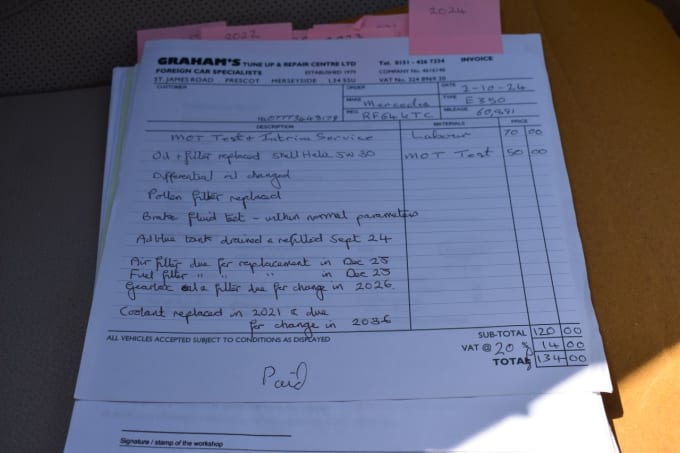 2024
2022
GRAHAM'S TUNE UP & REPAIR CENTRE LTD Tel. 0151 - 426 7334 INVOICE
FOREIGN CAR SPECIALISTS ESTABLISHED 1979 COMPANY No.
ST. JAMES ROAD PRESCOT MERSEYSIDE L34 5SU VAT No.
CUSTOMER ORDER DATE 2-10-24
MAKE Mercedes TYPE E350
REG. RF64LTC MILEAGE
DESCRIPTION MATERIALS PRICE
MOT Test + Intrim Service Labour 70 00
Oil + filter replaced Shell Helix 5W30 MOT Test 50 00
Differential oil changed
Pollen filter replaced
Brake fluid test - within normal parameters
Adblue tank drained & refilled Sept 24
Air filter due for replacement in Dec 25
Fuel filter " " " in Dec 25
Gearbox oil & filter due for change in 2026.
Coolant replaced in 2021 & due
for change in 2036
ALL VEHICLES ACCEPTED SUBJECT TO CONDITIONS AS DISPLAYED
SUB-TOTAL 120 00
VAT @ 20 % 14 00
TOTAL 134-00
Paid
Signature / stamp of the workshop